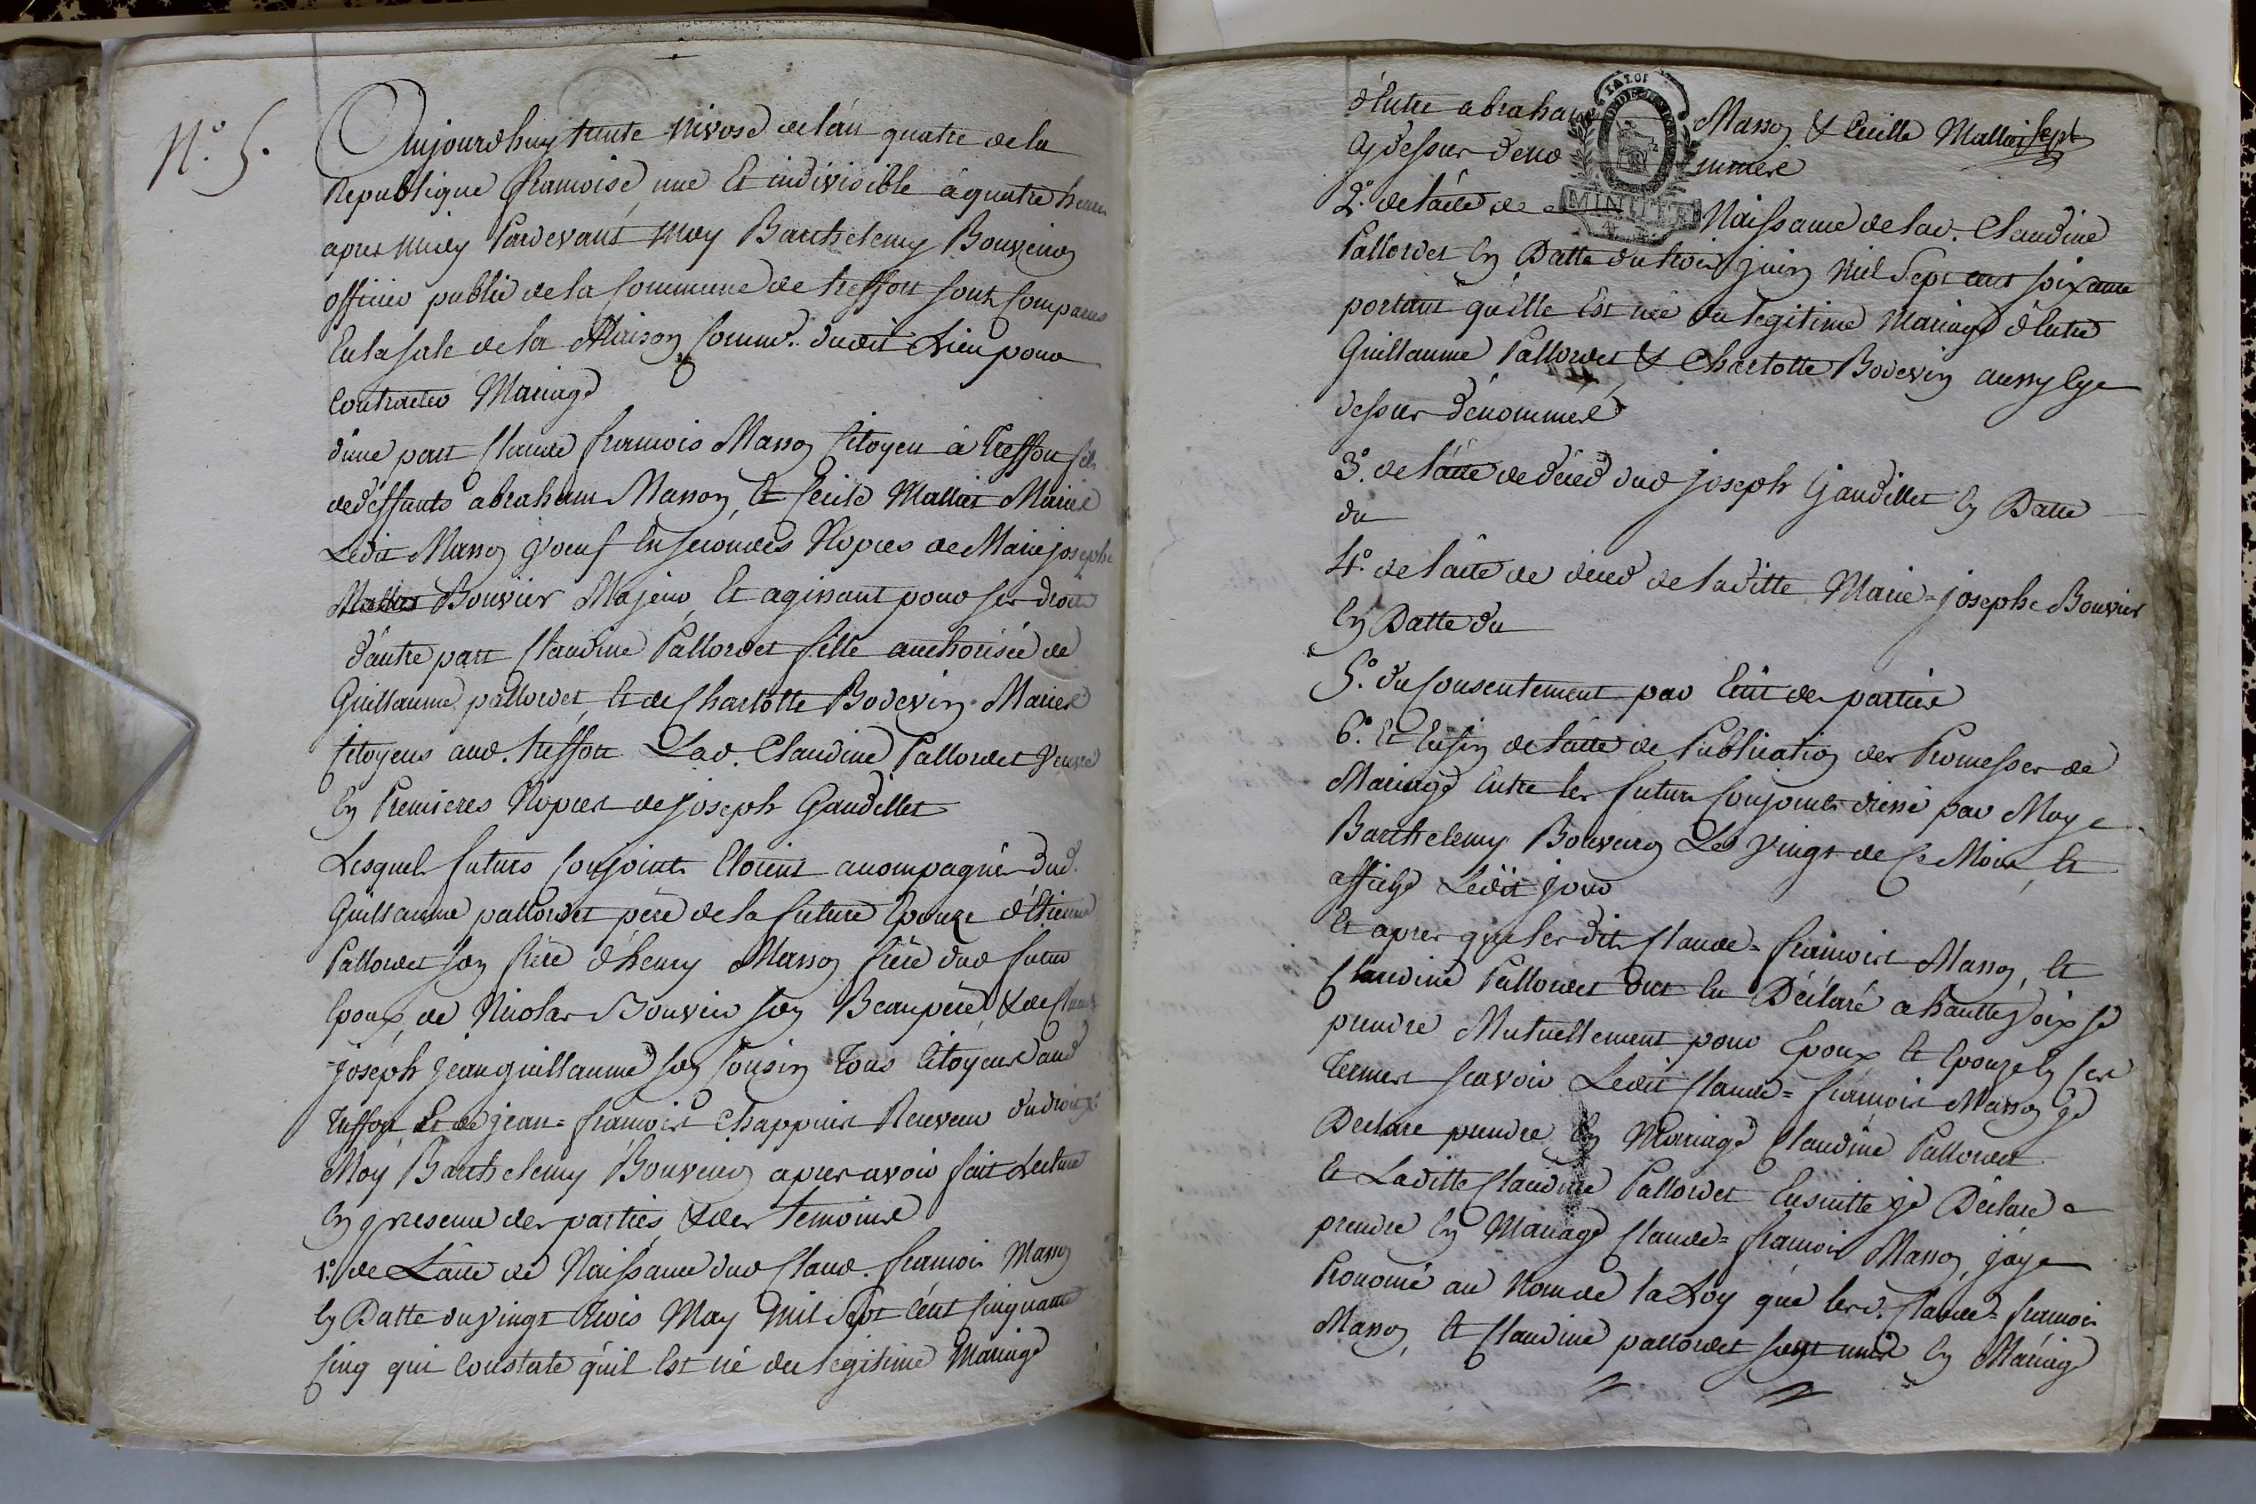 N.° 5.
Aujourdhuy trente Nivose de l'an quatre de la
Republique francoise une Et indivisible à quatre heures
apres Midy Pardevant Moy Barthelemy Bouveiroz
officier public de la Commune de treffort sont Comparus
En la sale de la Maison Commu.e dudit Lieu pour
Contracter Mariage
d'une part Claude francois Masson Citoyen à Treffort fils
de deffunts abraham Masson, Et Cecile Malliet Mariés
Ledit Masson Voeuf En Secondes Nopces de Marie josephe
Bouvier Majeur, Et agissant pour ses droits
d'autre part Claudine Pallordet fille authorisée de
Guillaume pallordet, Et de Charlotte Bodevin Mariés
Citoyens aud. treffort Lad. Claudine Pallordet Veuve
En Premieres Nopces de joseph Gaudillet
Lesquels futurs Conjoints Etoient accompagnés dud.
Guillaume pallordet père de la future Epouze d'Etienne
Pallordet son frere d'henry Masson frère dud futur
Epoux, de Nicolas Bouvier son Beaupère, & de Claude
-joseph jeanguillaume son Cousin Tous Citoyens aud
Treffort Et de jean=francois Chappuis Receveur du droit
Moy Barthelemy Bouveiroz apres avoir fait Lecture
En presence des parties, & des temoins
1.° de L'acte de Naissance dud Claud. francois Masson
En Datte du vingt trois May Mil Sept Cent Cinquante
Cinq qui Constate qu'il Est né du legitime Mariage
d'Entre abraham Masson & Cecille Malliet sept
Cy dessus deno mmés
MINUTE
2.° de l'acte de Naissance de lad. Claudine
Pallordet En Datte du trois juin Mil Sept cent soixante
portant qu'Elle Est née du legitime Mariage d'Entre
Guillaume Pallordet & Charlotte Bodevin aussy Cy
dessus dénommés
3.° de l'acte de déced dud joseph Gaudillet En Datte
du
4.° de l'acte de deced de laditte Marie=josephe Bouvier
En Datte du
5.° du Consentement par Ecrit des parties
6.° Et Enfin de l'acte de Publication des Promesses de
Mariage Entre les futurs Conjoints dressé par Moy
Barthelemy Bouveiroz Les Vingt de Ce Mois, Et
affiché Ledit jour
Et apres que lesdits Claude=francois Masson, Et
Claudine Pallordet Eut Déclaré a hautte Voix se
prendre Mutuellement pour Epoux Et Epouze En Ces
Termes scavoir Ledit Claude=francois Masson je
Declare prendre En Mariage Claudine Pallordet
Et Laditte Claudine Pallordet Ensuitte je Déclare
prendre En Mariage Claude=francois Masson, j'ay
Prononcé au Nom de la Loy que lesd. Claude=francois
Masson, Et Claudine pallordet sont unis En Mariage